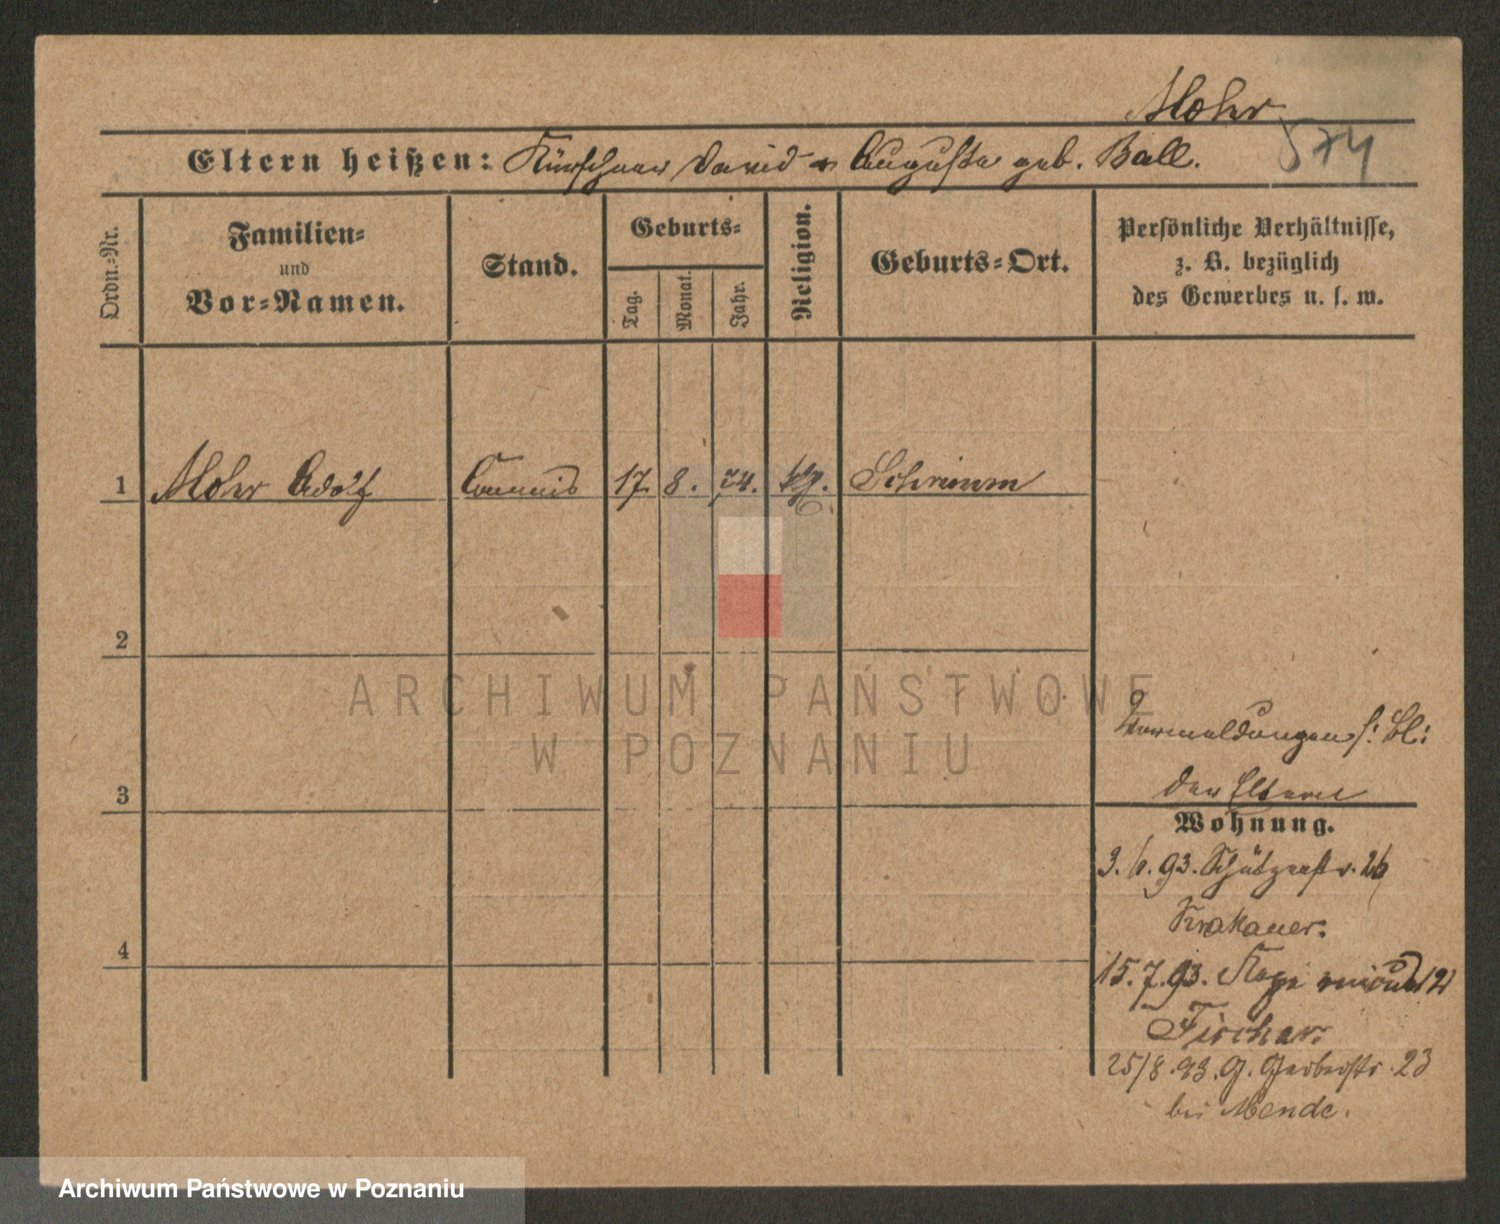 Mohr
574
Eltern heißen: Kürschner David u Auguste geb. Ball.
Ordn.-Nr.
Familien-
und
Vor-Namen.
Stand.
Geburts-
Tag.
Monat.
Jahr.
Religion.
Geburts-Ort.
Persönliche Verhältnisse,
z. B. bezüglich
des Gewerbes u. s. w.
1 Mohr Adolf Commis 17. 8. 74. Schrimm
2
ARCHIWUM PAŃSTWOWE
W POZNANIU
Vormeldungen s: Bl:
der Eltern
3
Wohnung.
3. 6. 93. Schützenstr. 26
Krakauer.
4
15. 7. 93.
Fischer.
25/8. 93. G. Gerberstr. 23
bei Mende.
Archiwum Państwowe w Poznaniu